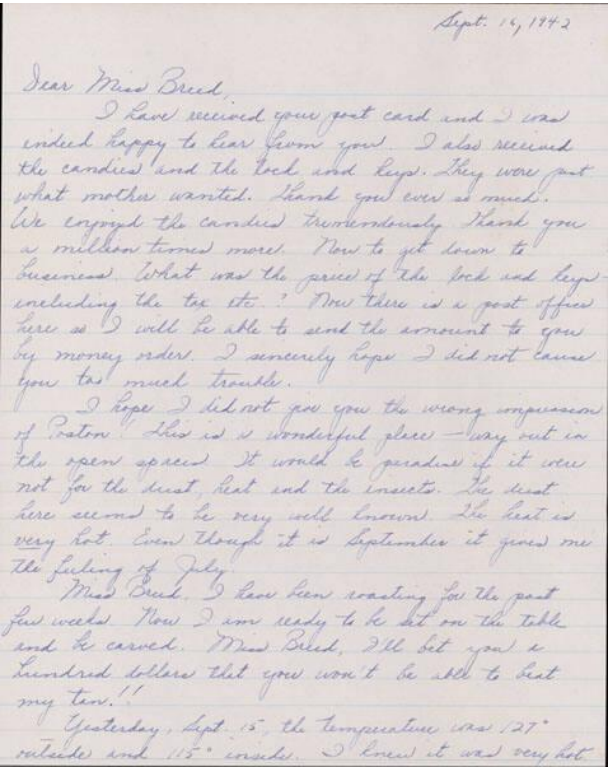 Sept. 16, 1942
Dear Miss Breed,
I have received your post card and I was
indeed happy to hear from you. I also received
the candies and the lock and keys. They were just
what mother wanted. Thank you ever so much.
We enjoyed the candies tremendously. Thank you
a million times more. Now to get down to
business. What was the price of the lock and keys
including the tax etc? Now there is a post office
here so I will be able to send the amount to you
by money order. I sincerely hope I did not cause
you too much trouble.
I hope I did not give you the wrong impression
of Poston! This is a wonderful place — way out in
the open spaces. It would be paradise if it were
not for the dust, heat and the insects. The dust
here seems to be very well known. The heat is
very hot. Even though it is September it gives me
the feeling of July.
Miss Breed, I have been roasting for the past
few weeks. Now I am ready to be set on the table
and be carved. Miss Breed, I'll bet you a
hundred dollars that you won't be able to beat
my tan!!
Yesterday, Sept. 15, the temperature was 127°
outside and 115° inside. I knew it was very hot.